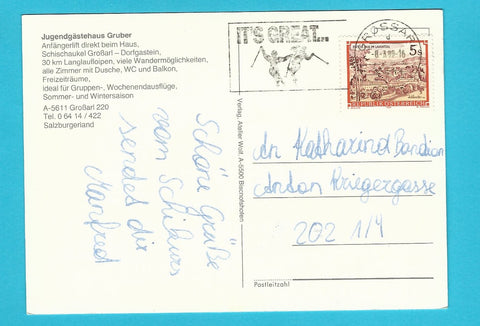 Jugendgästehaus Gruber
Anfängerlift direkt beim Haus,
Schischaukel Großarl – Dorfgastein,
30 km Langlaufloipen, viele Wandermöglichkeiten,
alle Zimmer mit Dusche, WC und Balkon,
Freizeiträume,
ideal für Gruppen-, Wochenendausflüge,
Sommer- und Wintersaison
A-5611 Großarl 220
Tel. 0 64 14 / 422
Salzburgerland
Schöne Grüße
vom Schikurs
sendet dir
Manfred
Verlag, Atelier Wolf, A-5500 Bischofshofen
IT'S GREAT...
5 S
REPUBLIK ÖSTERREICH
An Katharina Bandion
Anton Kriegergasse
202 1/4
Postleitzahl